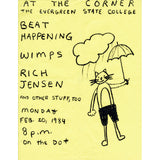 AT THE CORNER
THE EVERGREEN STATE COLLEGE
BEAT
HAPPENING
WIMPS
RICH
JENSEN
AND OTHER STUFF, TOO
MONDAY
FEB. 20, 1984
8 p.m.
ON THE DOT